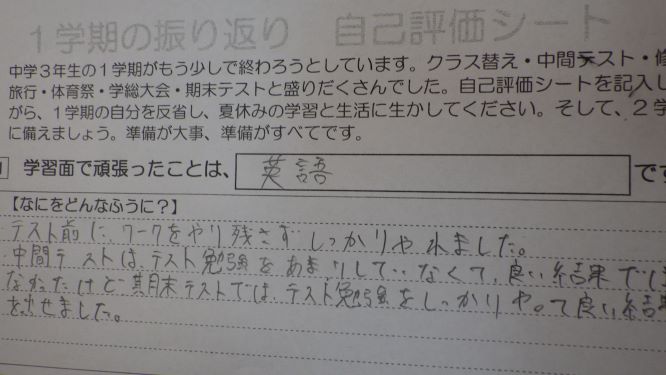 1学期の振り返り 自己評価シート
中学3年生の1学期がもう少しで終わろうとしています。クラス替え・中間テスト・修
旅行・体育祭・学総大会・期末テストと盛りだくさんでした。自己評価シートを記入し
がら、1学期の自分を反省し、夏休みの学習と生活に生かしてください。そして、2学
に備えましょう。準備が大事、準備がすべてです。
学習面で頑張ったことは、 英語 です
【なにをどんなふうに?】
テスト前に、ワークをやり残さずしっかりやれました。
中間テストは、テスト勉強をあまりしていなくて、良い結果では
なかったけど期末テストでは、テスト勉強をしっかりやって良い結果
を出せました。